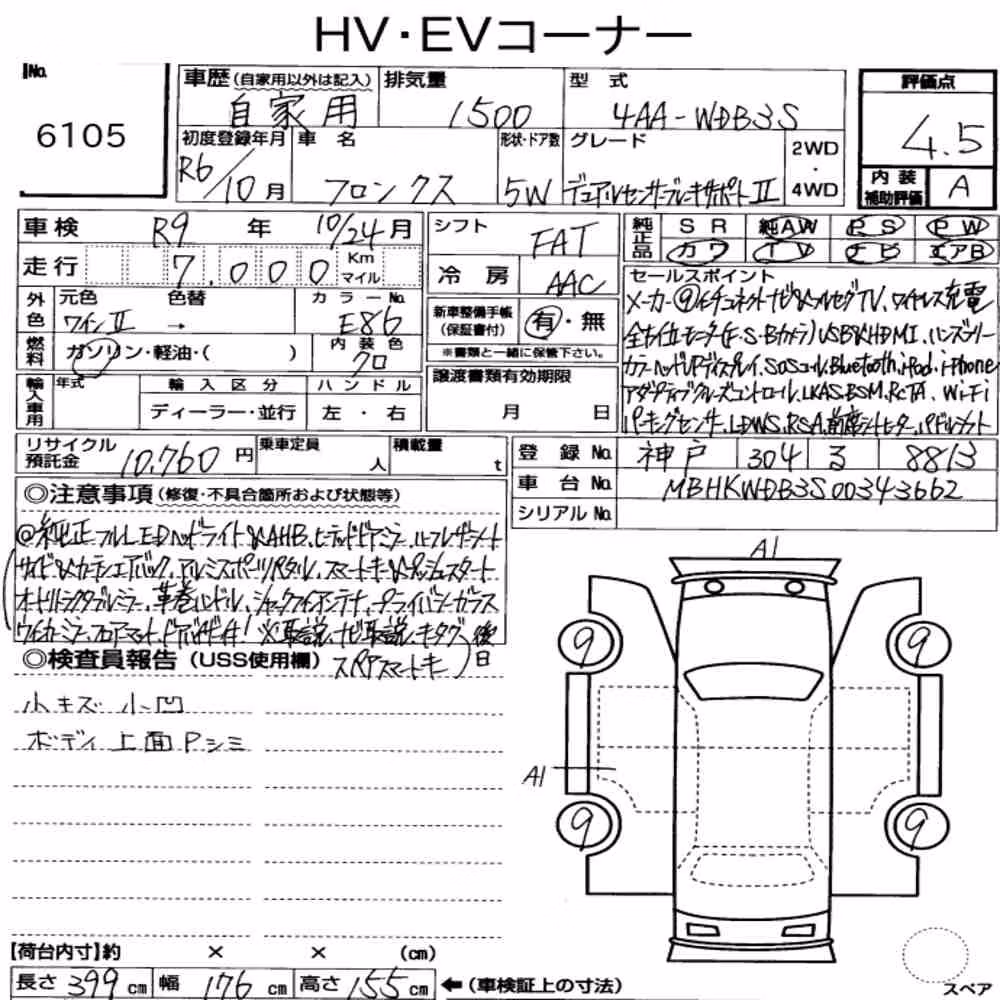 HV・EVコーナー
No.
6105
車歴(自家用以外は記入) 自家用
排気量 1500
型式 4AA-WDB3S
評価点 4.5
初度登録年月 R6/10月
車名 フロンクス
形状・ドア数 5W
グレード デュアルセンサーブレーキサポートⅡ
2WD・4WD
内装補助評価 A
車検 R9年 10/24月
シフト FAT
純正品 SR 純AW PS PW
カワ TV ナビ エアB
走行 7,000 Km マイル
冷房 AAC
セールスポイント
外色 元色 ワインⅡ 色替 → カラーNo. E86
新車整備手帳(保証書付) 有・無
※書類と一緒に保管下さい。
燃料 ガソリン・軽油・( )
内装色 クロ
メーカー⑨イチコネクトナビ&フルセグTV、ワイヤレス充電
全方位モニター(F・S・Bカメラ)USB&HDMI、ハンズフリー
カラーヘッドUPディスプレイ、SOSコール、Bluetooth、iPod、iPhone
アダプティブクルーズコントロール、LKAS、BSM、RCTA、Wi-Fi
パーキングセンサー、LDWS、RSA、前席シートヒーター、パドルシフト
輸入車用 年式 輸入区分 ディーラー・並行 ハンドル 左・右
譲渡書類有効期限
月 日
リサイクル預託金 10,760円
乗車定員 人
積載量 t
登録No. 神戸 304 る 8813
車台No. MBHKWDB3S00343662
シリアルNo.
◎注意事項(修復・不具合箇所および状態等)
@純正フルLEDヘッドライト&AHB、ヒーテッドドアミラー、ハーフレザーシート
サイド&カーテンエアバック、アルミスポーツペダル、スマートキー&プッシュスタート
オートリトラクタブルミラー、革巻ハンドル、シャークフィンアンテナ、プライバシーガラス
ウィンカーミラー、フロアマット、ドアバイザー付! ※取説、ナビ取説、キータグ、後日
スペアスマートキー)
◎検査員報告(USS使用欄)
小キズ 小凹
ボディ上面Pシミ
A1
A1
9
9
9
9
【荷台内寸】約 × × (cm)
長さ 399 cm 幅 176 cm 高さ 155 cm ←(車検証上の寸法)
スペア